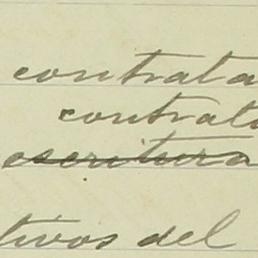 contrata
contrat
escritura
tivos del